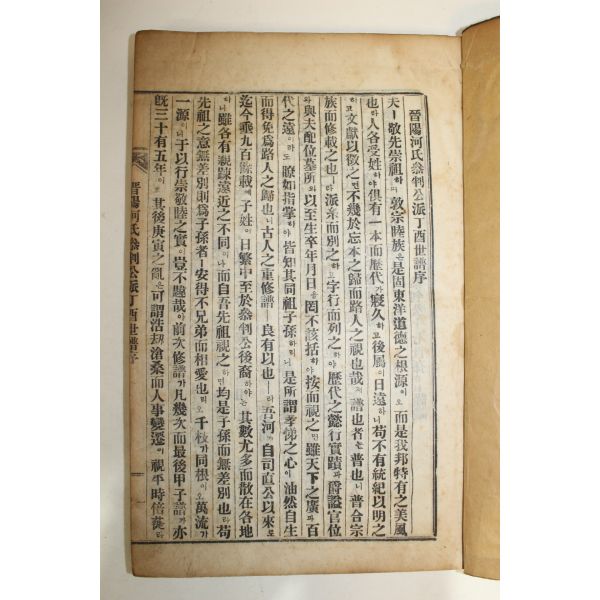 晉陽河氏叅判公派丁酉世譜序
夫敬先崇祖하며敦宗睦族은是固東洋道德之根源이오而是我邦特有之美風
也라人各受姓하야俱有一本而歷代가寢久하고後屬이日遠하니苟不有統紀以明之
하고文獻以徵之면不幾於忘本之歸而路人之視也哉아譜也者는普也니普合宗
族而修載之也라派系而別之하고字行而列之하야歷代之懿行實蹟과爵諡官位
와與夫配位墓所와以至生卒年月日을罔不該括하야按而視之면雖天下之廣과百
代之遠이라도瞭如指掌하야皆知其同祖子孫하리니是所謂孝悌之心이油然自生
而得免爲路人之歸也니古人之重修譜는良有以也라吾河가自司直公以來로
迄今乘九百餘載에子姓이日繁中至於叅判公後裔하야는其數尤多而散在各地
하니雖各有親踈遠近之不同이나而自吾先祖視之하면均是子孫而無差別也라苟
先祖之意無差別則爲子孫者가安得不兄弟而相愛也리오千枝가同根이오萬流가
一源이니于以行崇敬睦之實이豈不韙哉아前次修譜가凡幾次而最後甲子譜가亦
旣三十有五年이오其後庚寅之亂은可謂浩劫滄桑而人事變遷이視平時倍蓰라
晋陽河氏叅判公派丁酉世譜序